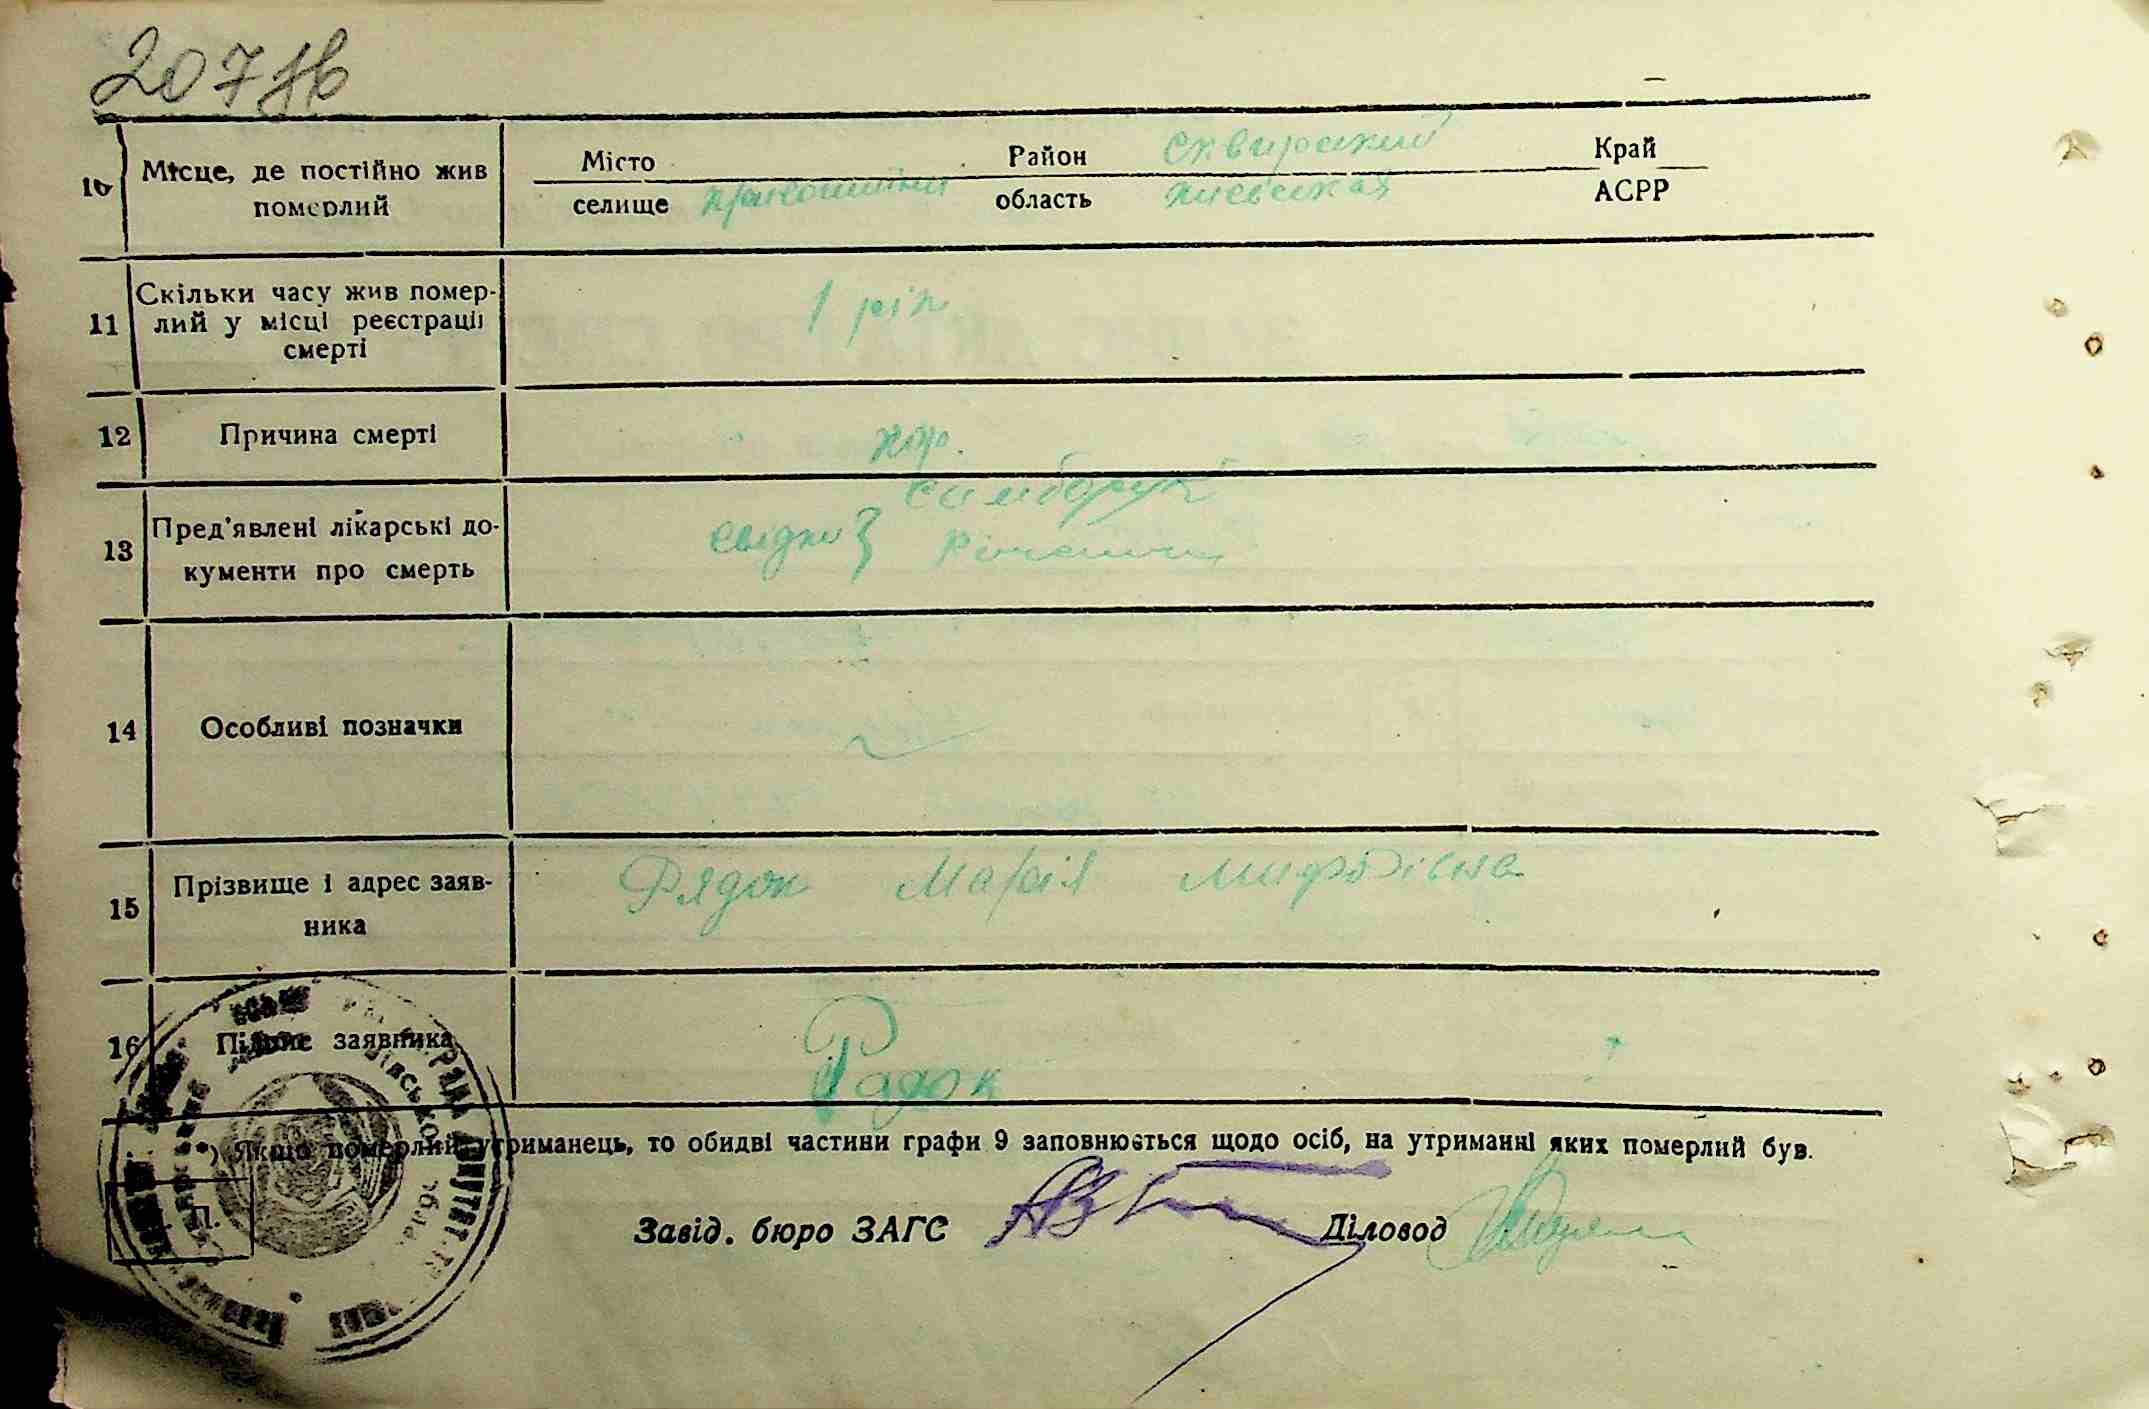 207
10 Місце, де постійно жив померлий
Місто Район Сквирский Край
селище область киевская АСРР
11 Скільки часу жив помер-
лий у місці реєстрації
смерті
1 рік
12 Причина смерті
кор.
13 Пред'явлені лікарські до-
кументи про смерть
Самборук
свідки
14 Особливі позначки
15 Прізвище і адрес заяв-
ника
Рядок Марія Мифодієвна
16 Підпис заявника
Радок
*) Якщо померлий утриманець, то обидві частини графи 9 заповнюється щодо осіб, на утриманні яких померлий був.
П.
Завід. бюро ЗАГС Діловод